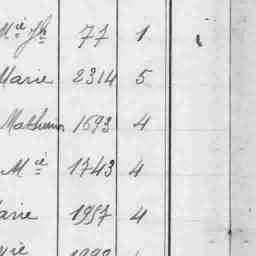 Mie Jh 77 1
Marie 2314 5
Mathurin 1693 4
Mie 1743 4
arie 1957 4